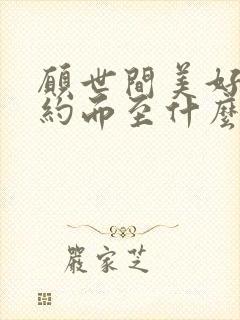 願世間美好
約而至什麼
嚴家芝